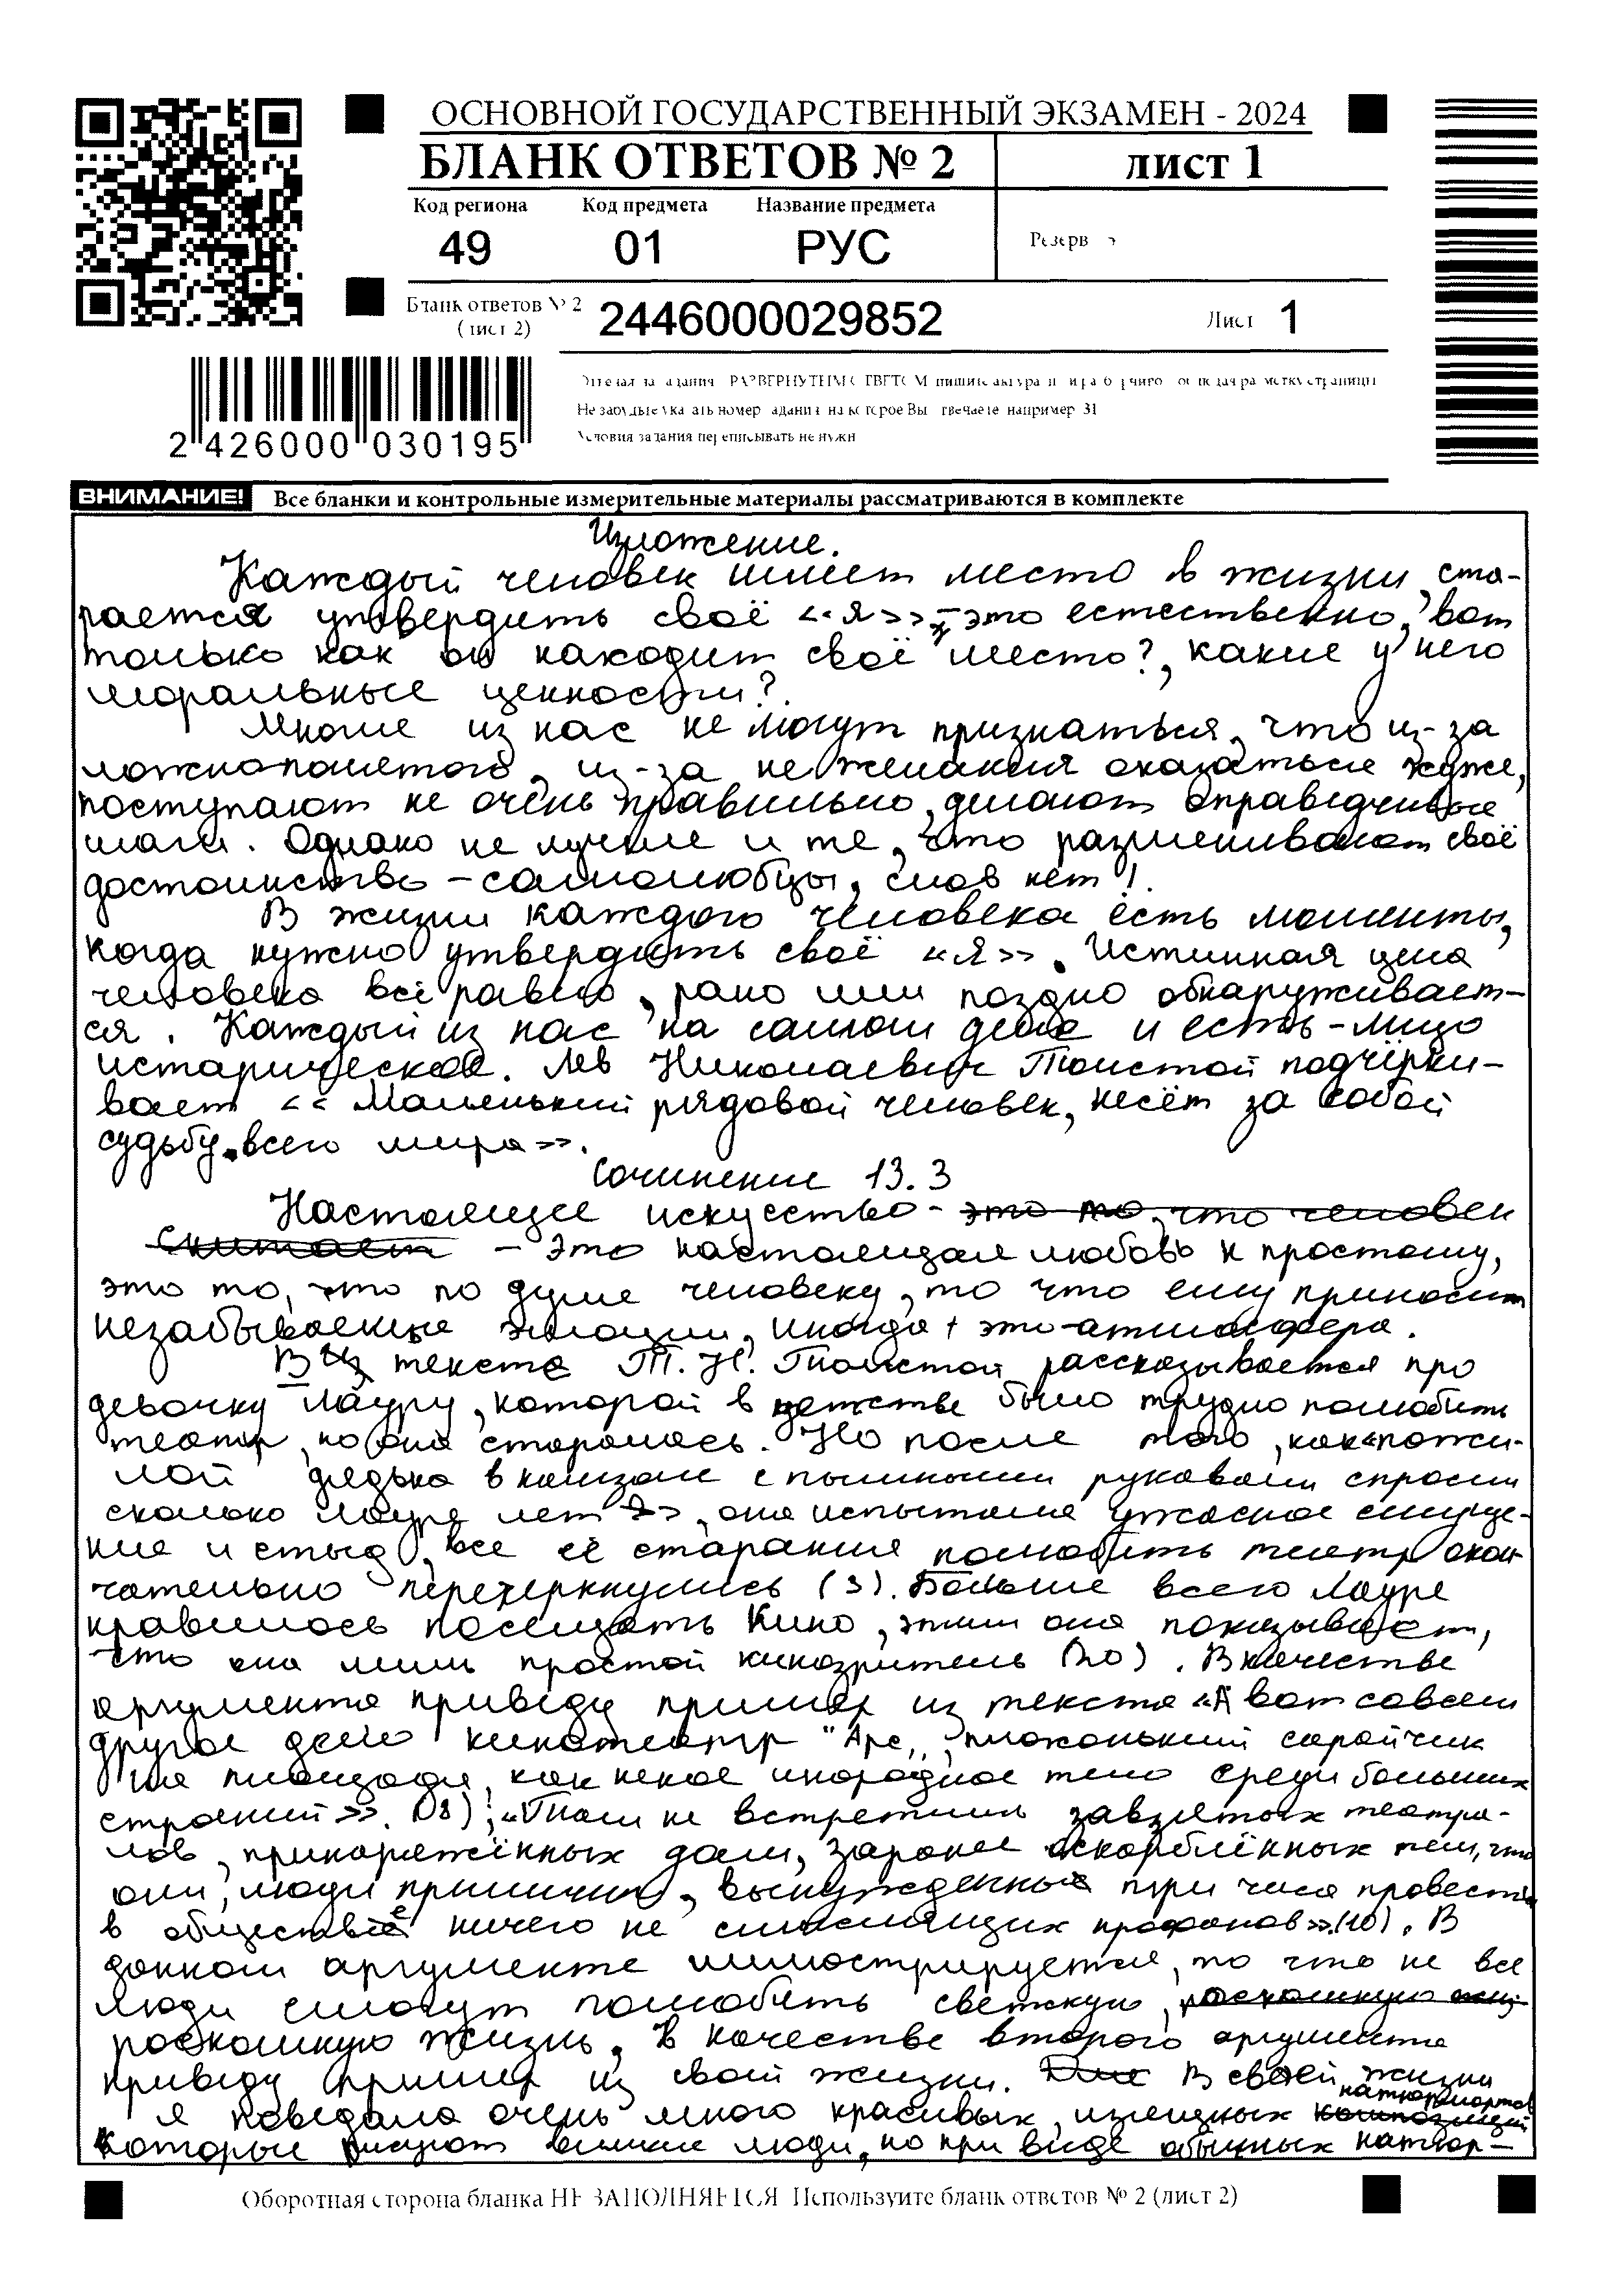 ОСНОВНОЙ ГОСУДАРСТВЕННЫЙ ЭКЗАМЕН - 2024
БЛАНК ОТВЕТОВ № 2
лист 1
Код региона Код предмета Название предмета
49 01 РУС
Резерв
Бланк ответов № 2
(лист 2)
2446000029852
Лист 1
2 426000 030195
Условия задания переписывать не нужн
ВНИМАНИЕ! Все бланки и контрольные измерительные материалы рассматриваются в комплекте
Изложение.
Каждый человек имеет место в жизни, ста-
рается утвердить своё «я» - это естественно, вот
только как он находит своё место?, какие у него
моральные ценности?
Многие из нас не могут признаться, что из-за
ложнопонетого, из-за не желания оказаться хуже,
поступают не очень правильно, делают опраедчивые
шаги. Однако не лучше и те, что разменивают своё
достоинство - самолюбцы, слов нет!.
В жизни каждого человека есть моменты,
когда нужно утвердить своё «я». Истинная цена
человека всё равно, рано или поздно обнаруживает-
ся. Каждый из нас на самом деле и есть - лицо
историческое. Лев Николаевич Толстой подчёрки-
вает «Маленький рядовой человек, несёт за собой
судьбу всего мира».
Сочинение 13.3
Настоящее искусство - это то, что человек
считает - это настоящая любовь к простому,
это то, что по душе человеку, то что ему приносит
незабываемые эмоции, иногда это-атмосфера.
В тексте Т. Н. Толстой рассказывается про
девочку Лауру, которой в детстве было трудно полюбить
театр, но она старалась. Но после того, как «пожи-
лой дядька в камзоле с пышными рукавами спросил
сколько Лауре лет?», она испытала ужасное смуще-
ние и стыд, все её старания полюбить театр окон-
чательно перечеркнулись (3). Больше всего Лауре
нравилось посещать кино, этим она показывает,
что она лишь простой кинозритель (20). В качестве
аргумента приведу пример из текста «А вот совсем
другое дело кинотеатр "Арс", плохонький сарайчик
на площади, как некое инородное тело среди больших
строений». (18); «Там не встретишь завзятых театра-
лов, принаряжённых дам, заранее оскорблённых тем, что
они, люди приличные, вынужденные три часа провести
в обществе ничего не смыслящих профанов» (10). В
данном аргументе иллюстрируется, то что не все
люди смогут полюбить светскую, роскошную жиз
роскошную жизнь. В качестве второго аргумента
приведу пример из своей жизни. Для В своей жизни
натюрмортов
я поведала очень много красивых, изящных композиций
которые рисуют великие люди, но при виде обычных натюр-
Оборотная сторона бланка НЕ ЗАПОЛНЯЕТСЯ. Используйте бланк ответов № 2 (лист 2)